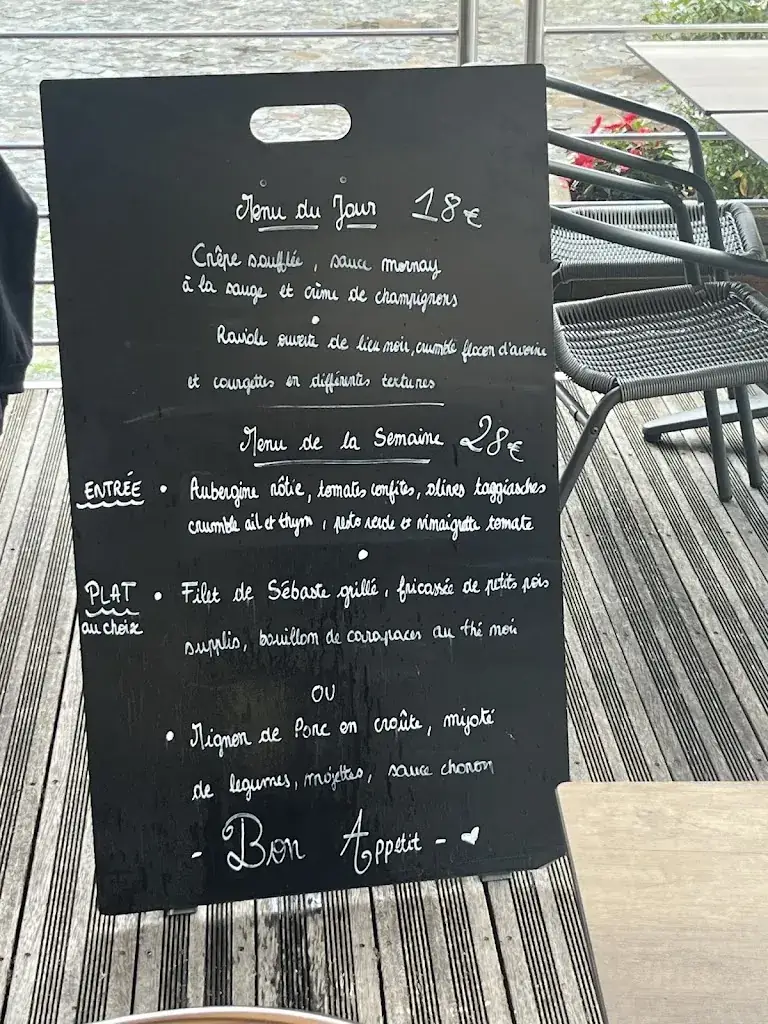 Menu du Jour 18€
Crêpe soufflée, sauce mornay
à la sauge et crème de champignons
•
Raviole ouverte de lieu noir, crumble flocon d'avoine
et courgettes en différentes textures
Menu de la Semaine 28€
ENTRÉE • Aubergine rôtie, tomates confites, olives taggiasches
crumble ail et thym, pesto verde et vinaigrette tomate
•
PLAT • Filet de Sébaste grillé, fricassée de petits pois
au choix supplis, bouillon de carapaces au thé noir
OU
• Mignon de Porc en croûte, mijoté
de legumes, mojettes, sauce choron
- Bon Appétit - ♥